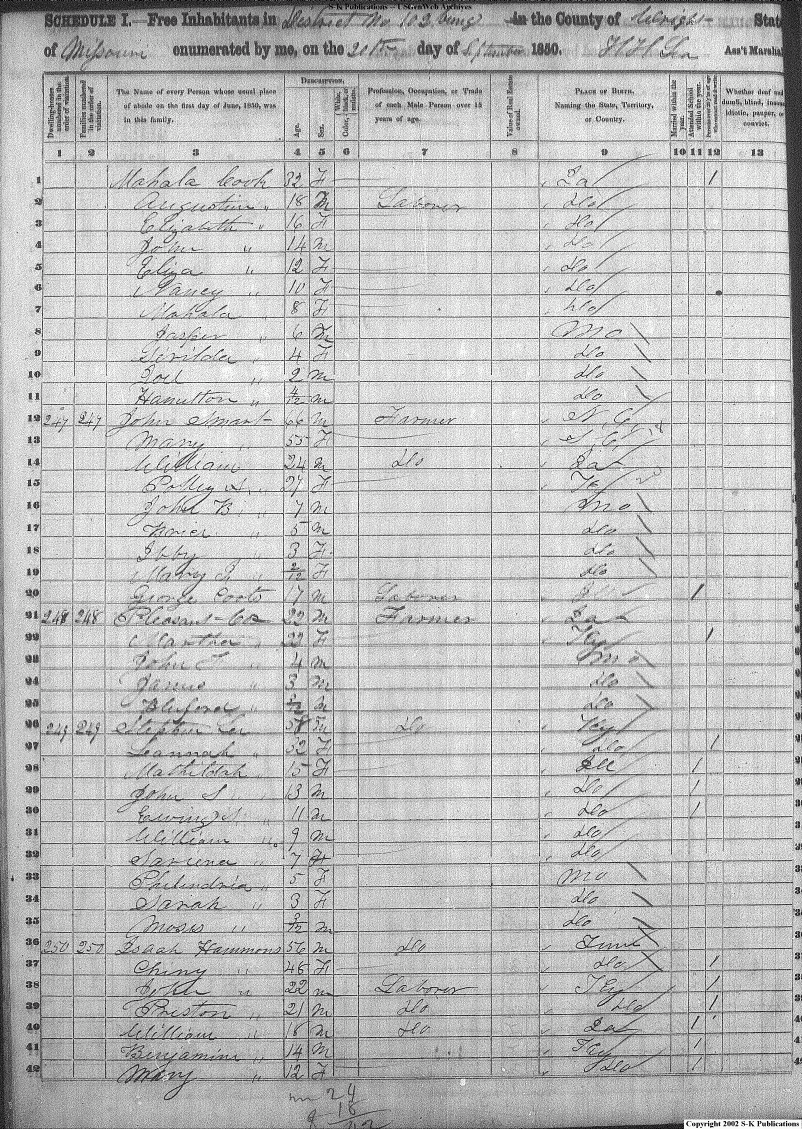 S-K Publications - USGenWeb Archives
SCHEDULE I.—Free Inhabitants in District No 103 in the County of Wright State
of Missouri enumerated by me, on the 20th day of September 1850. Ass't Marshal
Dwelling-houses numbered in the order of visitation.
Families numbered in the order of visitation.
The Name of every Person whose usual place of abode on the first day of June, 1850, was in this family.
Description.
Age.
Sex.
White, black, or mulatto.
Color,
Profession, Occupation, or Trade of each Male Person over 15 years of age.
Value of Real Estate owned.
Place of Birth. Naming the State, Territory, or Country.
Married within the year.
Attended School within the year.
Whether deaf and dumb, blind, insane, idiotic, pauper, or convict.
1 2 3 4 5 6 7 8 9 10 11 12 13
1 Mahala Cook 32 F Ia 1
2 Augustus " 18 M Laborer do
3 Elizabeth " 16 F do
4 John " 14 M do
5 Eliza " 12 F do
6 Nancy " 10 F do
7 Mahala " 8 F do
8 Jasper " 6 M Mo
9 Serilda " 4 F do
10 Joel " 2 M do
11 Hamilton " 4/12 M do
12 247 247 John Smart 66 M Farmer N. C.
13 Mary " 55 F S. C.
14 William " 24 M do Ia
15 Polley A. " 27 F
16 John B. " 7 M Mo
17 " 5 M do
18 Ibby " 3 F do
19 Mary J " 2/12 F do
20 George Coats 17 M Laborer 1
21 248 248 Pleasant 22 M Farmer Ia
22 Martha " 22 F Ky 1
23 John T " 4 M Mo
24 James " 3 M do
25 Bluford " M do
26 249 249 Stephen 58 M do Ky
27 Leannah " 32 F do 1
28 Mathildah " 15 F Ill 1
29 John S " 13 M do 1
30 Ewing " 11 M do 1
31 William " 9 M do
32 Saruena " 7 F do
33 Philindria " 5 F Mo
34 Sarah " 3 F do
35 Moses " M do
36 250 250 Isaah Hammons 56 M do Tenn
37 Chiny " 46 F do 1
38 John " 22 M Laborer Ky 1
39 Preston " 21 M do do 1
40 William " 18 M do Ia 1
41 Benjamin " 14 M Ky 1
42 Mary " 12 F do 1
m 24
f 18
42
Copyright 2002 S-K Publications